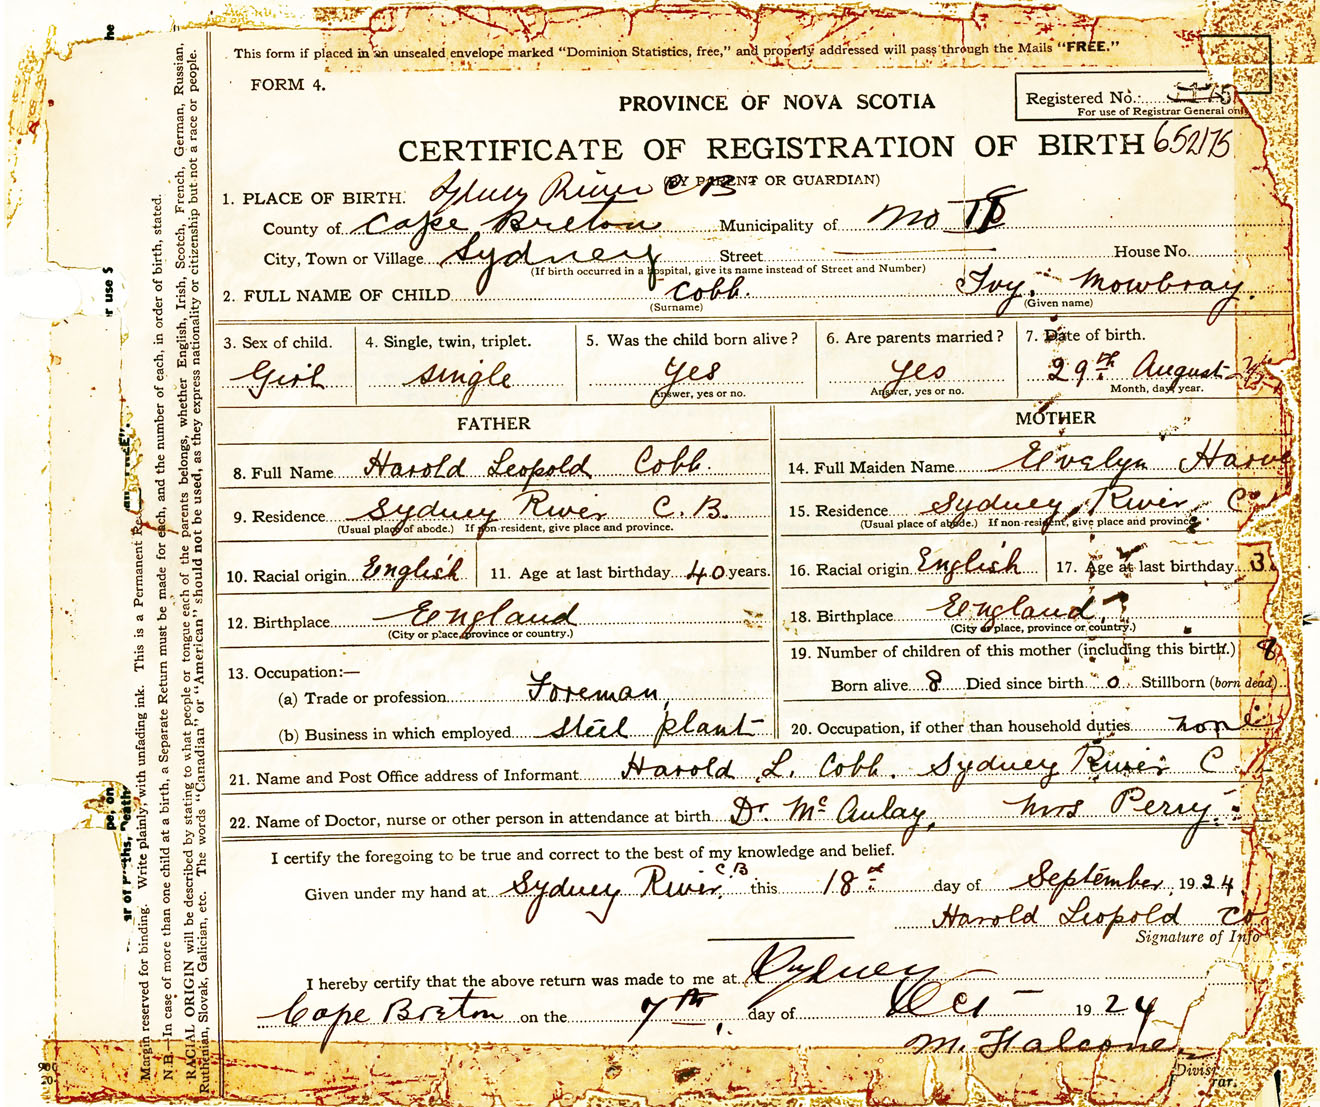 This form if placed in an unsealed envelope marked "Dominion Statistics, free," and properly addressed will pass through the Mails "FREE."
FORM 4.
PROVINCE OF NOVA SCOTIA
Registered No.
For use of Registrar General only
CERTIFICATE OF REGISTRATION OF BIRTH 652175
(BY PARENT OR GUARDIAN)
1. PLACE OF BIRTH. Sydney River C B
County of Cape Breton Municipality of No 18
City, Town or Village Sydney Street House No.
(If birth occurred in a hospital, give its name instead of Street and Number)
2. FULL NAME OF CHILD Cobb. Ivy, Mowbray.
(Surname) (Given name)
3. Sex of child. 4. Single, twin, triplet. 5. Was the child born alive? 6. Are parents married? 7. Date of birth.
Girl single Yes Yes 29th August
Answer, yes or no. Answer, yes or no. Month, day, year.
FATHER MOTHER
8. Full Name Harold Leopold Cobb. 14. Full Maiden Name Evelyn Harve
9. Residence Sydney River C. B. 15. Residence Sydney River C
(Usual place of abode.) If non-resident, give place and province. (Usual place of abode.) If non-resident, give place and province.
10. Racial origin English 11. Age at last birthday 40 years. 16. Racial origin English 17. Age at last birthday 3
12. Birthplace England 18. Birthplace England
(City or place, province or country.) (City or place, province or country.)
19. Number of children of this mother (including this birth.) 8
13. Occupation:—
Born alive 8 Died since birth 0 Stillborn (born dead)
(a) Trade or profession Foreman
(b) Business in which employed Steel plant 20. Occupation, if other than household duties none
21. Name and Post Office address of Informant Harold L. Cobb. Sydney River C
22. Name of Doctor, nurse or other person in attendance at birth Dr. McAulay, Mrs Perry.
I certify the foregoing to be true and correct to the best of my knowledge and belief.
Given under my hand at Sydney River, C.B this 18th day of September 1924
Harold Leopold Co
Signature of Info
I hereby certify that the above return was made to me at Sydney
Cape Breton on the 7th day of Oct 1924
M. Falconer
Divis
rar.
Margin reserved for binding. Write plainly, with unfading ink. This is a Permanent Re
N.B.—In case of more than one child at a birth, a Separate Return must be made for each, and the number of each, in order of birth, stated.
RACIAL ORIGIN will be described by stating to what people or tongue each of the parents belongs, whether English, Irish, Scotch, French, German, Russian,
Ruthenian, Slovak, Galician, etc. The words "Canadian" or "American" should not be used, as they express nationality or citizenship but not a race or people.